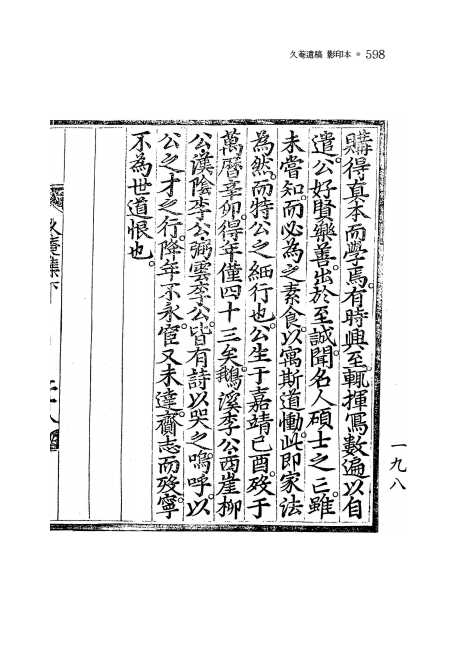 久菴遺稿 影印本 ● 598
購得真本而學焉。有時興至。輒揮寫數遍以自
遣。公好賢樂善。出於至誠。聞名人碩士之亡。雖
未嘗知。而必為之素食。以寓斯道慟。此即家法
為然。而特公之細行也。公生于嘉靖己酉。歿于
萬曆辛卯。得年僅四十三矣。鵝溪李公。西崖柳
公。漢陰李公。弼雲李公。皆有詩以哭之。嗚呼。以
公之才之行。降年不永。宦又未達。齎志而歿。寧
不為世道恨也。
久菴集下
一九八